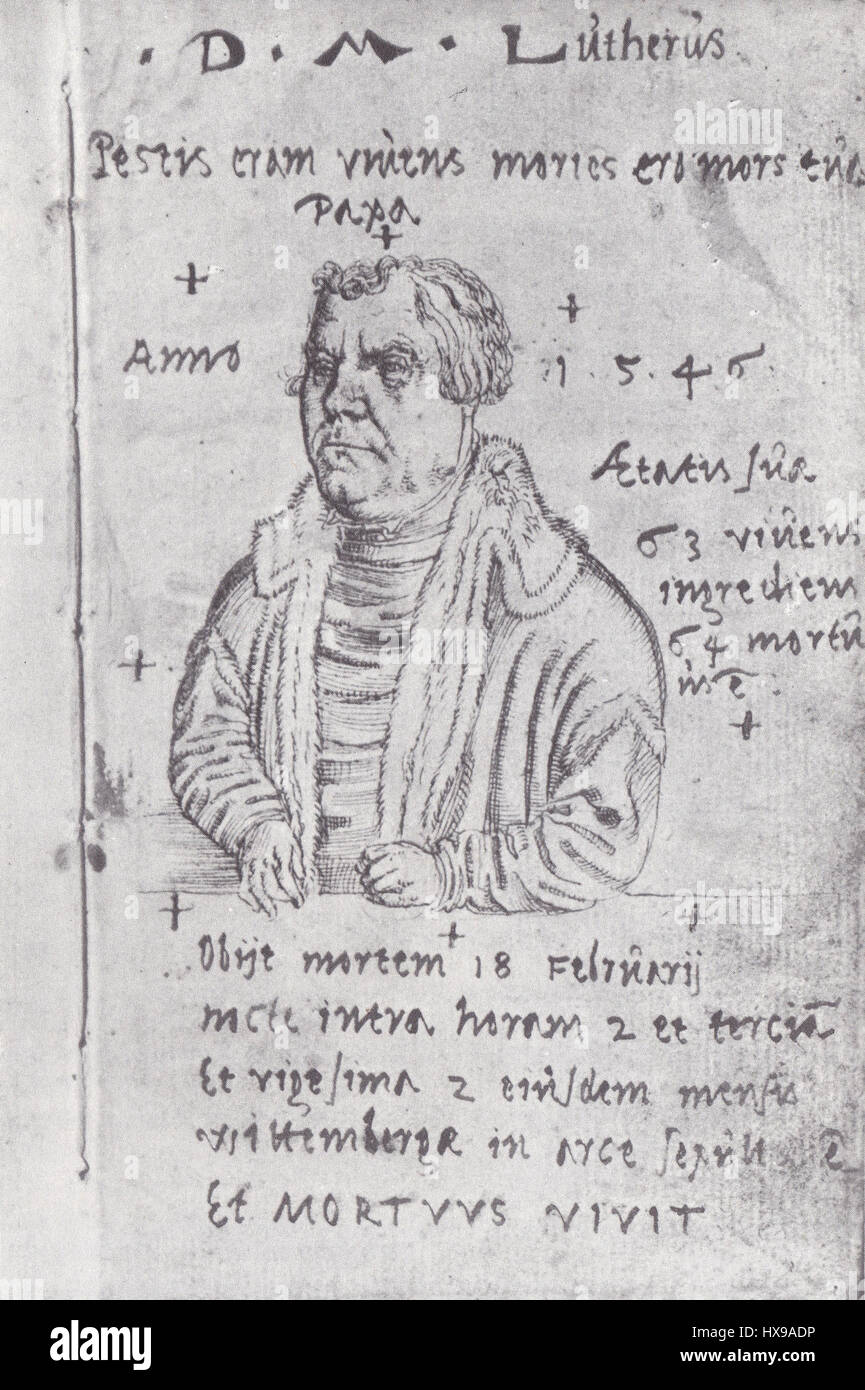 · D · M · Lutherus
Pestis eram vivens moriēs ero mors tua
papa
Anno 1 . 5 . 4 6 .
Ætatis suæ
63 vivens
ingrediens
64 mortu
us ē .
Obijt mortem 18 Februarij
nocte intra horam 2 et terciā
Et vigesima 2 eiusdem mensis
Wittembergæ in arce sepult ē
Et MORTVVS VIVIT
alamy
Image ID: HX9ADP
www.alamy.com